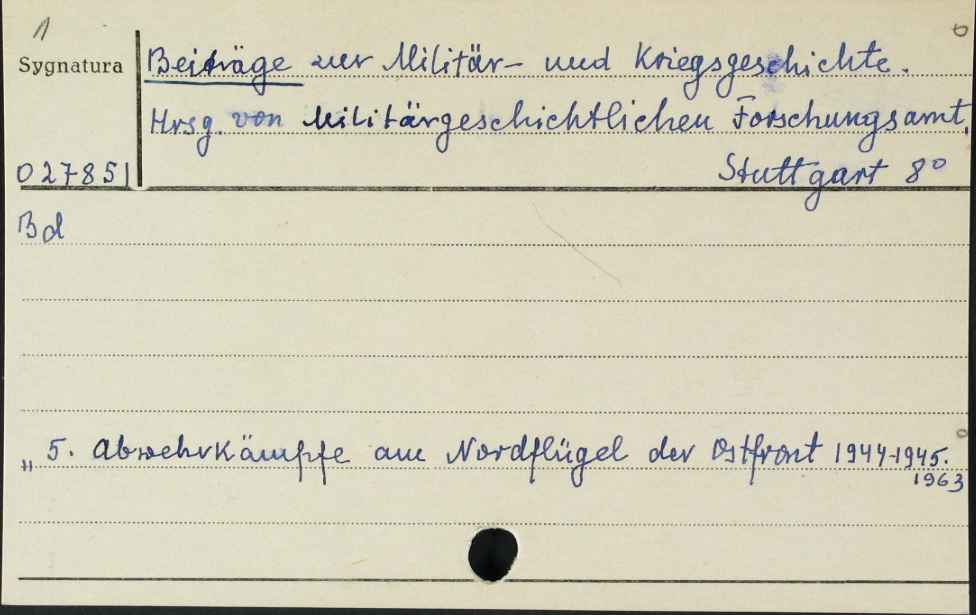 1
Sygnatura
Beiträge zur Militär- und Kriegsgeschichte.
Hrsg. von Militärgeschichtlichen Forschungsamt,
027851
Stuttgart 8°
Bd
„ 5. Abwehrkämpfe am Nordflügel der Ostfront 1944-1945.
1963